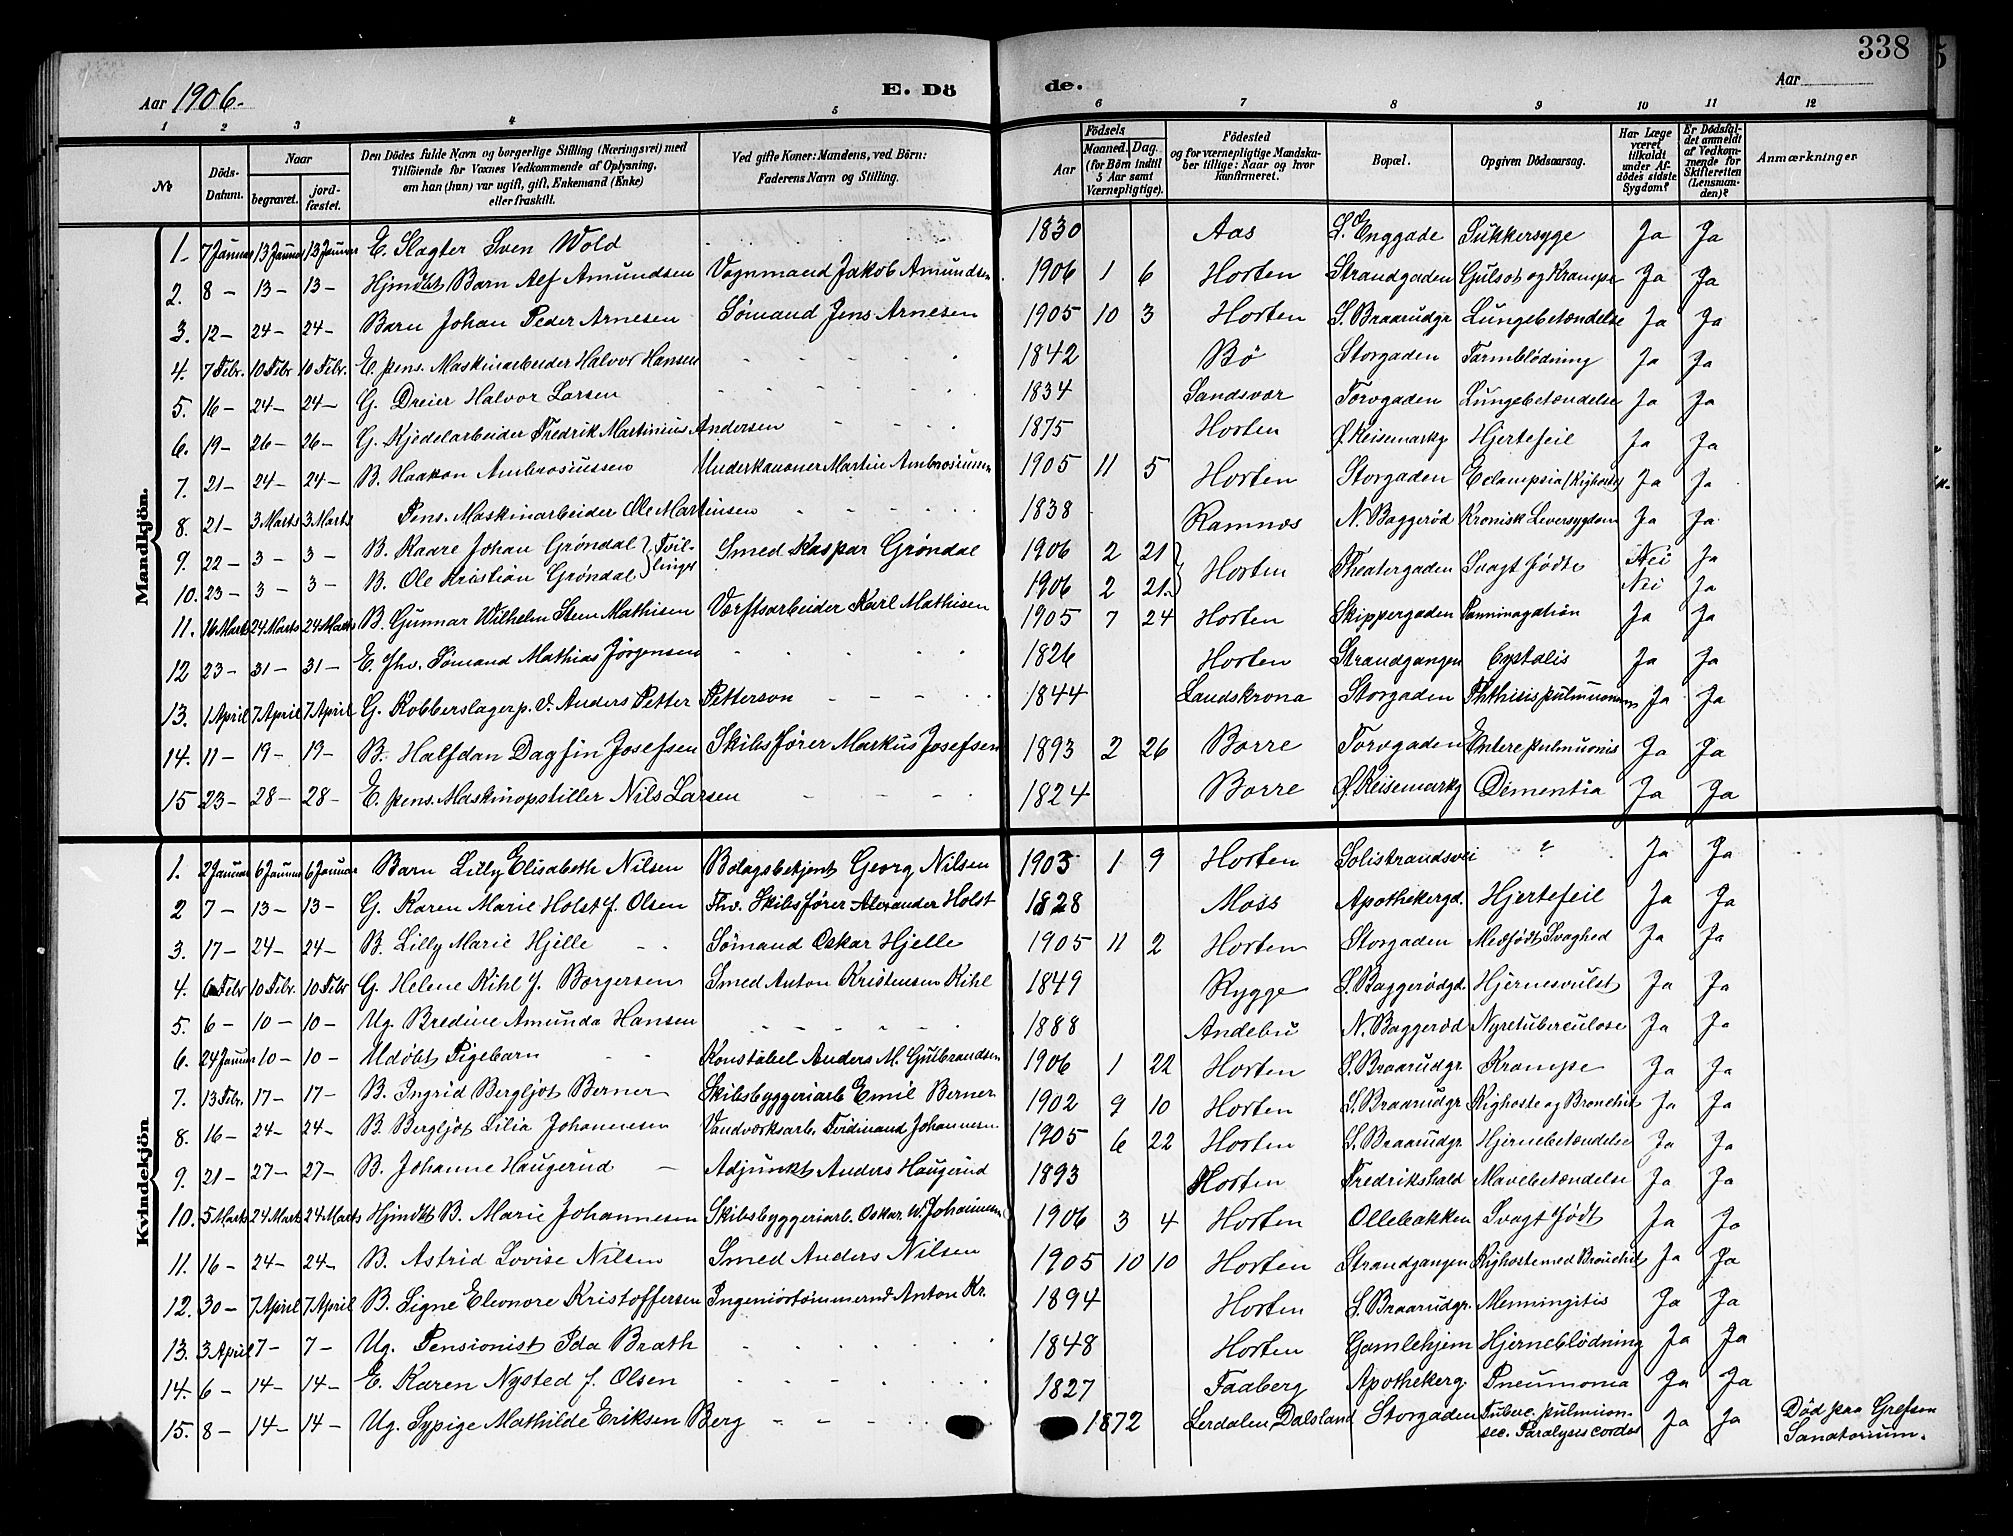 338
Aar 1906.
E. Dö
de.
Aar
1 2 3 4 5 6 7 8 9 10 11 12
№
Döds-Datum.
Naar
begravet.
jord-fæstet.
Den Dödes fulde Navn og borgerlige Stilling (Næringsvei) med Tilföiende for Voxnes Vedkommende af Oplysning, om han (hun) var ugift, gift, Enkemand (Enke) eller fraskilt.
Ved gifte Koner: Mandens, ved Börn: Faderens Navn og Stilling.
Födsels
Aar
Maaned. Dag.
(for Börn indtil 5 Aar samt Værnepligtige).
Födested og for værnepligtige Mandskaber tillige: Naar og hvor konfirmeret.
Bopæl.
Opgiven Dödsaarsag.
Har Læge været tilkaldt under Afdödes sidste Sygdom?
Er Dödsfaldet anmeldt af Vedkommende for Skifteretten (Lensmanden)?
Anmærkninger
Mandkjön.
1. 7 Januar 13 Januar 13 Januar E. Slagter Sven Wold 1830 Aas S. Enggade Sukkersyge Ja Ja
2. 8 – 13 – 13 – Hjmdbt Barn Alf Amundsen Vognmand Jakob Amundsen 1906 1 6 Horten Strandgaden Gulsot og Krampe Ja Ja
3. 12 – 24 – 24 – Barn Johan Peder Arnesen Sømand Jens Arnesen 1905 10 3 Horten S. Braarudgr Lungebetændelse Ja Ja
4. 7 Febr. 10 Febr 10 Febr. E. pens. Maskinarbeider Halvor Hansen 1842 Bö Storgaden Tarmblödning Ja Ja
5. 16 – 24 – 24 – G. Dreier Halvor Larsen 1834 Sandsvær Torvgaden Lungebetændelse Ja Ja
6. 19 – 26 – 26 – G. Kjedelarbeider Fredrik Martinius Andersen 1875 Horten Ø. Keisemarkg Hjertefeil Ja Ja
7. 21 – 24 – 24 – B. Haakon Ambrosiussen Underkanoner Martin Ambrosiussen 1905 11 5 Horten Storgaden Eclampsia (Kighoste) Ja Ja
8. 21 – 3 Marts 3 Marts Pens. Maskinarbeider Ole Martinsen 1838 Ramnæs N. Baggerød Kronisk Leversygdom Ja Ja
9. 22 – 3 – 3 – B. Kaare Johan Gröndal } Tvil- Smed Kaspar Gröndal 1906 2 21 } Horten Theatergaden Svagt födte Nei Ja
10. 23 – 3 – 3 – B. Ole Kristian Gröndal } linger 1906 2 21 } Nei Ja
11. 16 Marts 24 Marts 24 Marts B. Gunnar Wilhelm Stene Mathisen Værftsarbeider Karl Mathisen 1905 7 24 Horten Skippergaden Ja Ja
12 23 – 31 – 31 – E. fhv. Sømand Mathias Jörgensen 1826 Horten Strandgangen Ja Ja
13. 1 April 7 April 7 April G. Kobberslager p. V. Anders Petter Petterson 1844 Landskrona Storgaden Phthisis pulmuonum Ja Ja
14. 11 – 19 – 19 – B. Halfdan Dagfin Josefsen Skibsfører Markus Josefsen 1893 2 26 Borre Torvgaden pulmuonis Ja Ja
15 23 – 28 – 28 – E. pens. Maskinopstiller Nils Larsen 1824 Borre Ø. Keisemarkg Dementia Ja Ja
Kvindekjön
1. 2 Januar 6 Januar 6 Januar Barn Lilly Elisabeth Nilsen Bolagsbetjent Georg Nilsen 1903 1 9 Horten Solistrandsvei ? Ja Ja
2 7 – 13 – 13 – G. Karen Marie Holst f. Olsen Fhv. Skibsfører Alexander Holst 1828 Moss Apothekergd. Hjertefeil Ja Ja
3. 17 – 24 – 24 – B. Lilly Marie Hjelle Sömand Oskar Hjelle 1905 11 2 Horten Storgaden Medfödt Svaghed Ja Ja
4. 6 Febr 10 Febr. 10 Febr G. Helene Kihl f. Borgersen Smed Anton Kristensen Kihl 1849 Rygge S. Baggerødgd. Hjernesvulst Ja Ja
5. 6 – 10 – 10 – Ug. Bredine Amunda Hansen 1888 Andebu N. Baggerød Nyretuberculose Ja Ja
6. 24 Januar 10 – 10 – Udöbt Pigebarn Konstabel Anders M. Gulbrandsen 1906 1 22 Horten S. Braarudgr Krampe Ja Ja
7. 13 Febr. 17 – 17 – B. Ingrid Bergljot Berner Skibsbyggeriarb Emil Berner 1902 9 10 Horten S. Braarudgr Kighoste og Bronchit Ja Ja
8. 16 – 24 – 24 – B. Bergljot Lilia Johannesen Vandværksarb. Ferdinand Johannesen 1905 6 22 Horten S. Braarudgr. Hjernebetændelse Ja Ja
9. 21 – 27 – 27 – B. Johanne Haugerud Adjunkt Anders Haugerud 1893 Horten Fredrikshald Mavebetændelse Ja Ja
10. 5 Marts 24 Marts 24 Marts Hjmdbt B. Marie Johannesen Skibsbyggeriarb. Oskar W. Johannesen 1906 3 4 Horten Ollebakken Svagt födt Ja Ja
11. 16 – 24 – 24 – B. Astrid Lovise Nilsen Smed Anders Nilsen 1905 10 10 Horten Strandgangen Kighoste med Bronchit Ja Ja
12. 30 – 7 April 7 April B. Signe Eleonore Kristoffersen Ingeniortömmermd Anton Kr. 1894 Horten S. Braarudgr. Menningitis Ja Ja
13. 3 April 7 – 7 – Ug. Pensionist Ida Brath 1848 Horten Gamlehjem Hjerneblödning Ja Ja
14. 6 – 14 – 14 – E. Karen Nysted f. Olsen 1827 Faaberg Apothekerg Pneumonia Ja Ja
15. 8 – 14 – 14 – Ug. Sypige Mathilde Eriksen Berg 1872 Lerdalen, Dalsland Storgaden Tuberc. pulmuon. sec. Paralysis cordis Ja Ja Död paa Grefsen Sanatorium.